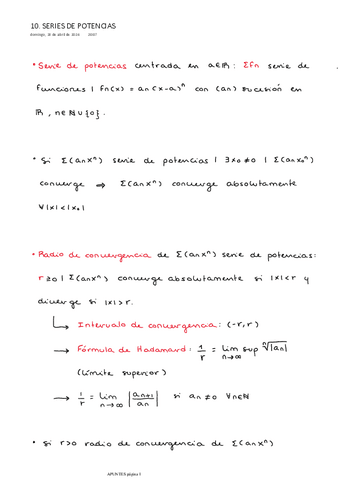 10. SERIES DE POTENCIAS
domingo, 28 de abril de 2024
• Serie de potencias centrada en a∈ℝ: Σfn serie de
funciones | fn(x) = an(x-a)ⁿ con (an) sucesión en
ℝ, n∈ℕ∪{0}.
• Si Σ(anxⁿ) serie de potencias | ∃x₀≠0 | Σ(anx₀ⁿ)
converge ⇒ Σ(anxⁿ) converge absolutamente
∀|x|<|x₀|
• Radio de convergencia de Σ(anxⁿ) serie de potencias:
r≥0 | Σ(anxⁿ) converge absolutamente si |x|<r y
diverge si |x|>r.
↳ Intervalo de convergencia: (-r,r)
→ Fórmula de Hadamard: 1/r = lim sup n→∞ ⁿ√|an|
(límite superior)
→ 1/r = lim n→∞ |an+1/an| si an≠0 ∀n∈ℕ
• Si r>0 radio de convergencia de Σ(anxⁿ)
APUNTES página 1